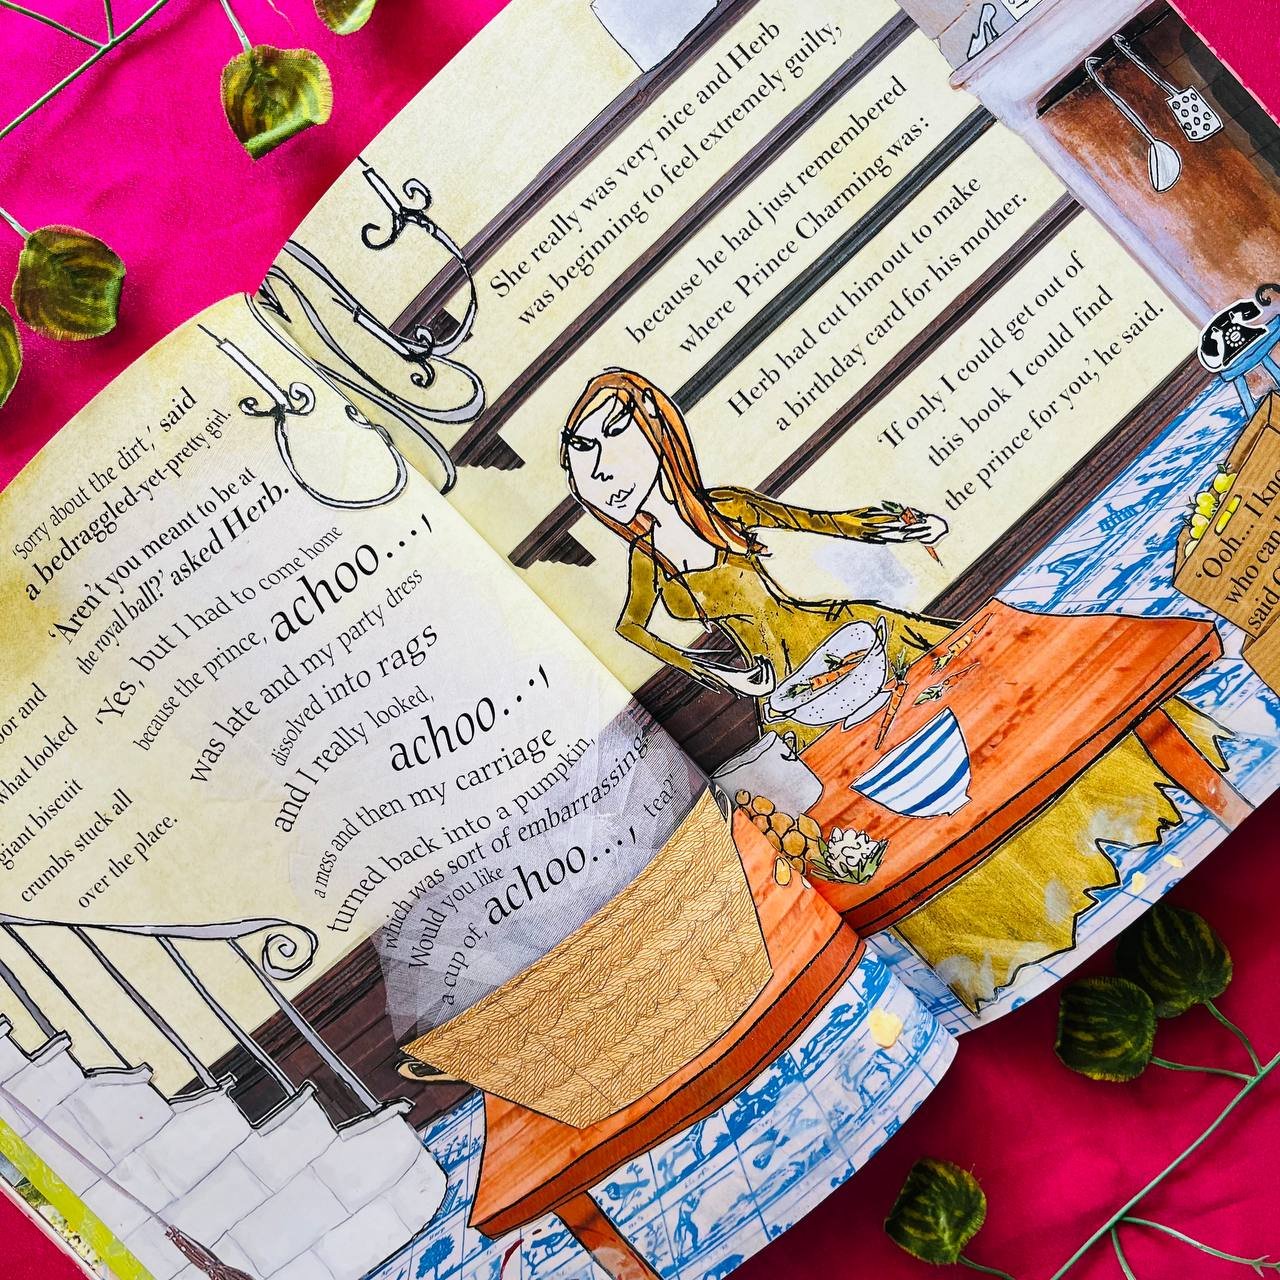 'Sorry about the dirt,' said
a bedraggled-yet-pretty girl.
'Aren't you meant to be at
the royal ball?' asked Herb.
'Yes, but I had to come home
because the prince, achoo...,
was late and my party dress
dissolved into rags
and I really looked,
achoo...,
a mess and then my carriage
turned back into a pumpkin,
which was sort of embarrassing.
Would you like
a cup of, achoo..., tea?'
and
what looked
giant biscuit
crumbs stuck all
over the place.
She really was very nice and Herb
was beginning to feel extremely guilty,
because he had just remembered
where Prince Charming was:
Herb had cut him out to make
a birthday card for his mother.
'If only I could get out of
this book I could find
the prince for you,' he said.
'Ooh... I
who can
said